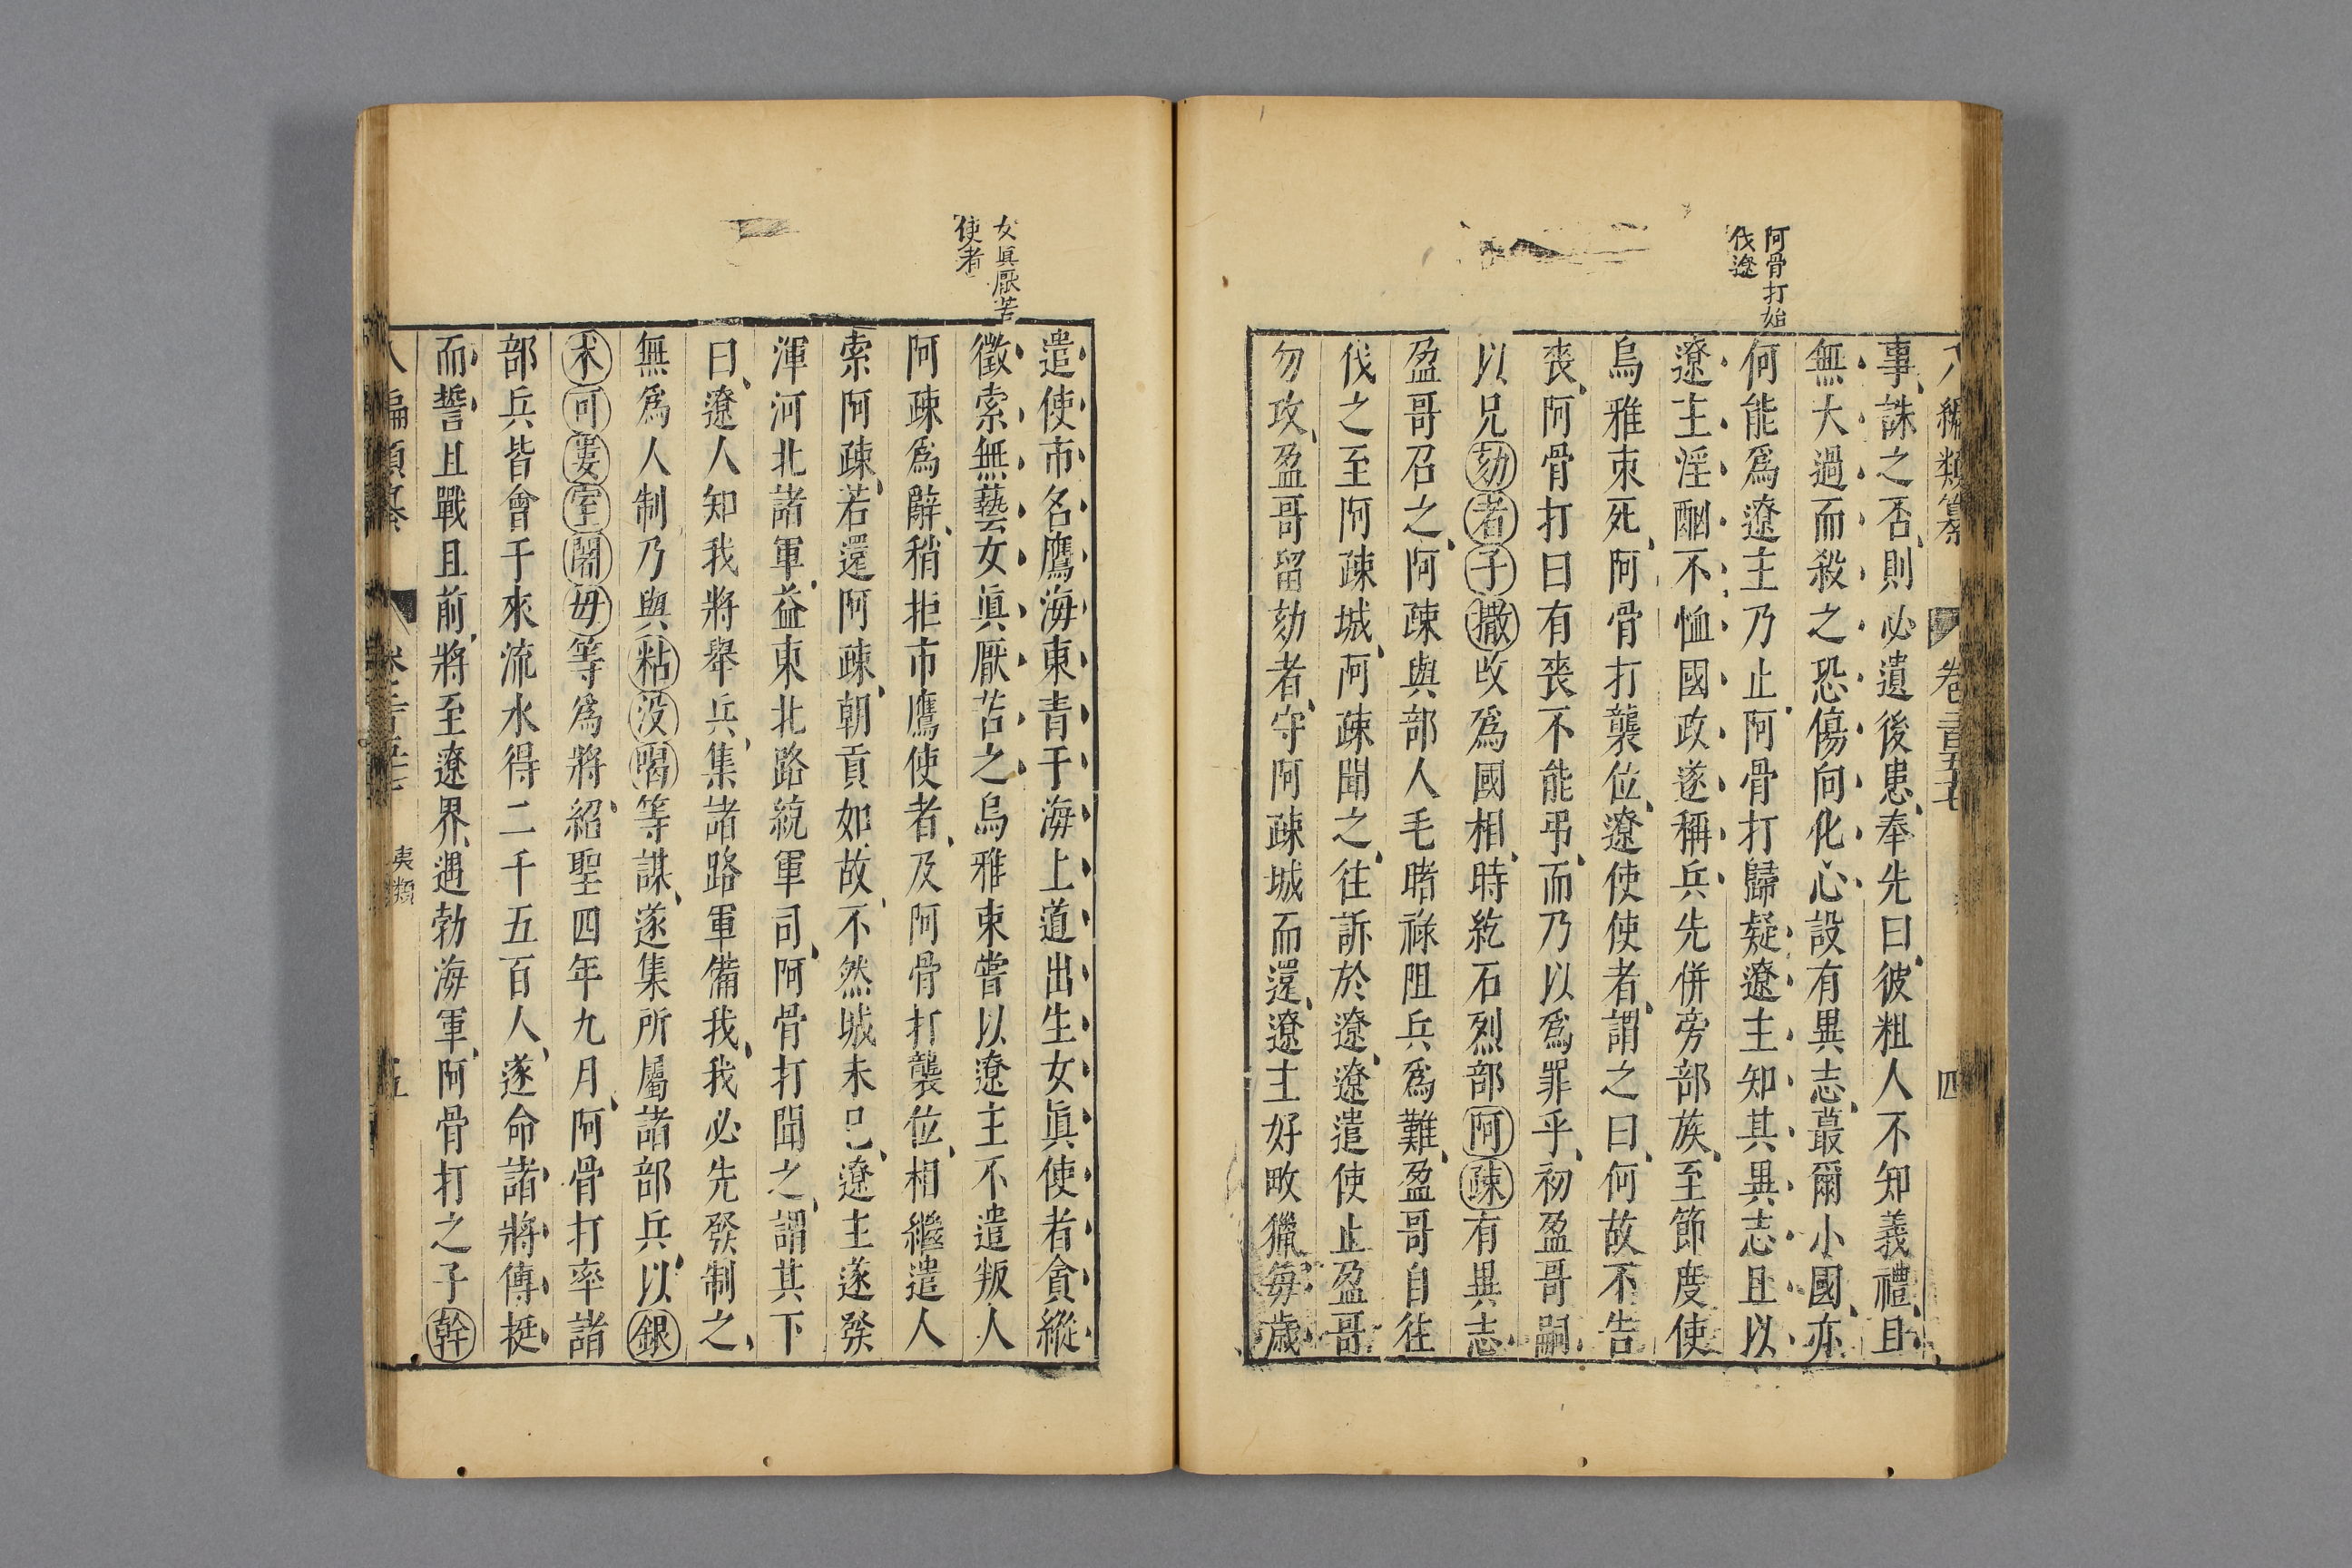 阿骨打始
伐遼
八編類纂 卷二百五十七 四
事誅之否則必遺後患奉先曰彼粗人不知義禮且
無大過而殺之恐傷向化心設有異志蕞爾小國亦
何能爲遼主乃止阿骨打歸疑遼主知其異志且以
遼主淫酗不恤國政遂稱兵先併旁部族至節度使
烏雅束死阿骨打襲位遼使使者謂之曰何故不告
喪阿骨打曰有喪不能弔而乃以爲罪乎初盈哥嗣
以兄劾者子撒改爲國相時紇石烈部阿疎有異志
盈哥召之阿疎與部人毛睹祿阻兵爲難盈哥自往
伐之至阿疎城阿疎聞之往訴於遼遼遣使止盈哥
勿攻盈哥留劾者守阿疎城而還遼主好畋獵每歲
女眞厭苦
使者
遣使市名鷹海東青于海上道出生女眞使者貪縱
徵索無藝女眞厭苦之烏雅束嘗以遼主不遣叛人
阿疎爲辭稍拒市鷹使者及阿骨打襲位相繼遣人
索阿疎若還阿疎朝貢如故不然城未已遼主遂發
渾河北諸軍益東北路統軍司阿骨打聞之謂其下
曰遼人知我將舉兵集諸路軍備我我必先發制之
無爲人制乃與粘没喝等謀遂集所屬諸部兵以銀
术可婁室闍毋等爲將紹聖四年九月阿骨打率諸
部兵皆會于來流水得二千五百人遂命諸將傳挺
而誓且戰且前將至遼界遇勃海軍阿骨打之子幹
夷類
五